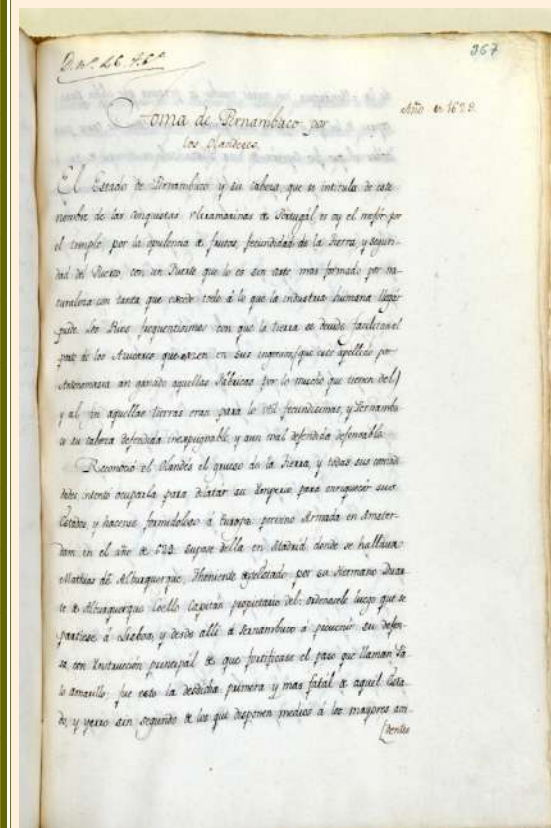 D. nº. 46. f. 6ª.
367
Año de 1629.
Toma de Pernambuco por
los Olandeses.
El Estado de Pernambuco y su cabeza, que se intitula de este
nombre de las conquistas ultramarinas de Portugál, es oy el mejór por
el temple, por la opulencia de frutos, fecundidad de la tierra, y seguri-
dad del Puerto, con un Fuerte que lo es sin arte mas formado por na-
turaleza con tanta que excede todo á lo que la industria humana llegár
pudo. Los Rios frequentisimos con que la tierra se divide facilitan el
de los Azucares que en sus ingenios (que este apellido por
Antonomasia an ganado aquellas Fábricas por lo mucho que tienen del)
y al fin aquellas tierras eran para lo util fecundisimas, y Pernambu
y su cabeza defendida inexpugnable, y aun mal defendida defensable.
Reconoció el Olandés el grueso de la tierra, y todas sus comodi
dades intentó ocuparla para dilatár su Imperio para enriquecér sus
Estados, y hacerse formidoloso á Europa: previno Armada en Amster-
dam en el año de 629. supose della en Madrid donde se hallava
Mathias de Alburquerque, Theniente por su Hermano Duar-
te de Alburquerque Coello Capitán propietario del: ordenósele luego que se
partiese á Lisboa, y desde allí á Pernambuco á prevenir su defen-
sa, con Instrucción principál de que fortificase el paso que llaman Pa-
lo amarillo: fue esto la desdicha primera y mas fatál de aquel Esta-
do, y yerro sin segundo de los que disponen medios á los mayores aci-
dentes